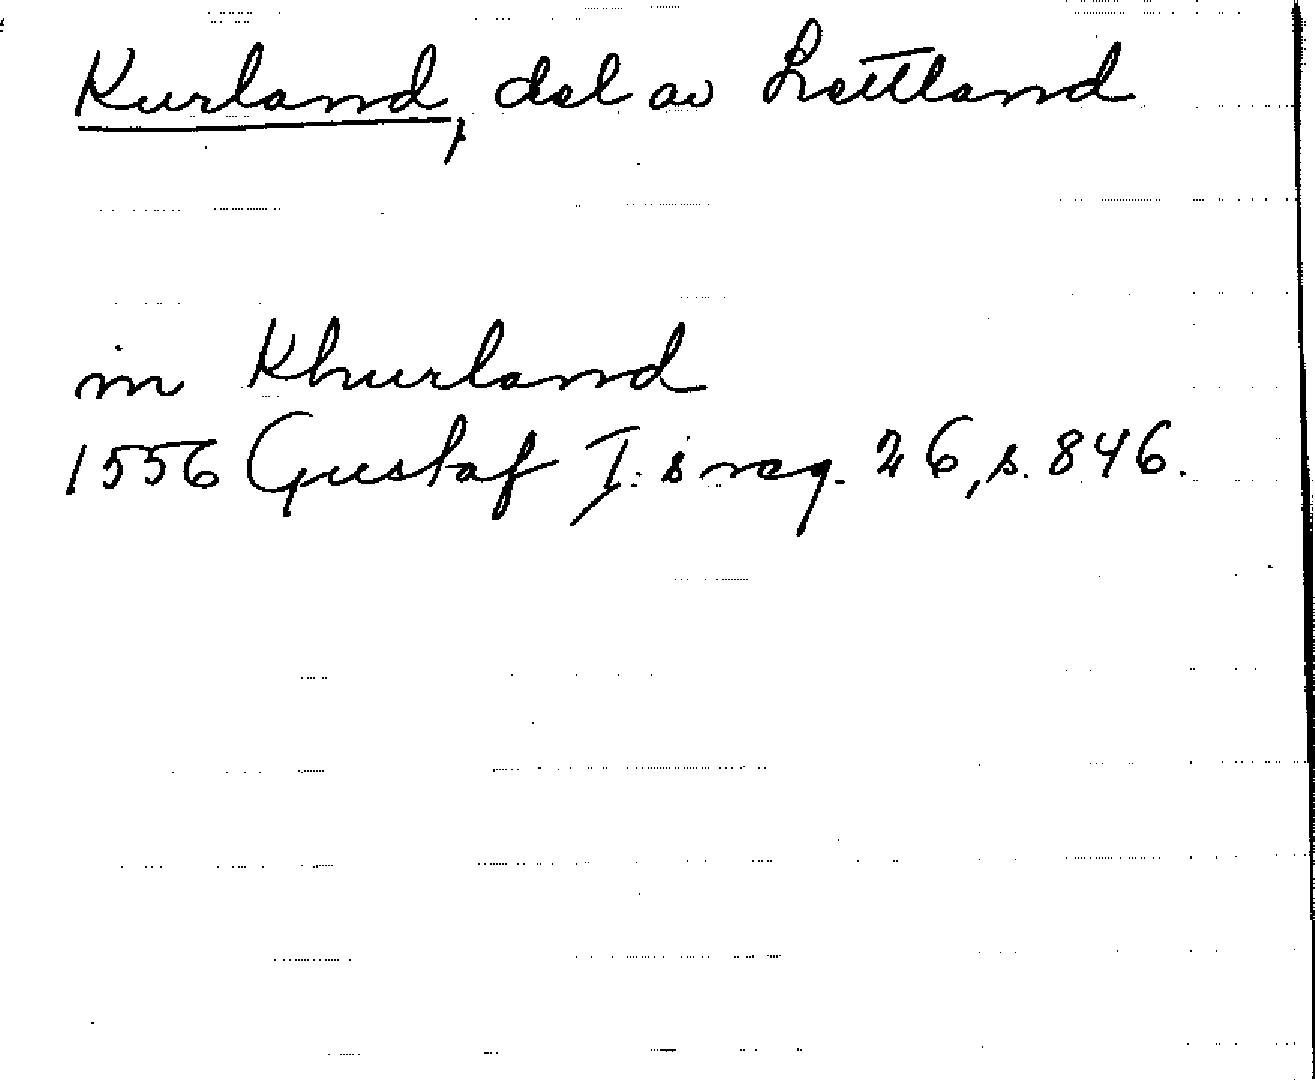 Kurland, del av Lettland
in Khurland
1556 Gustaf I:s reg. 26, s. 846.